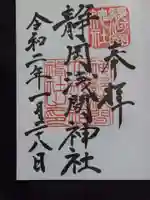 奉拝
静岡浅間神社
令和二年二月二八日